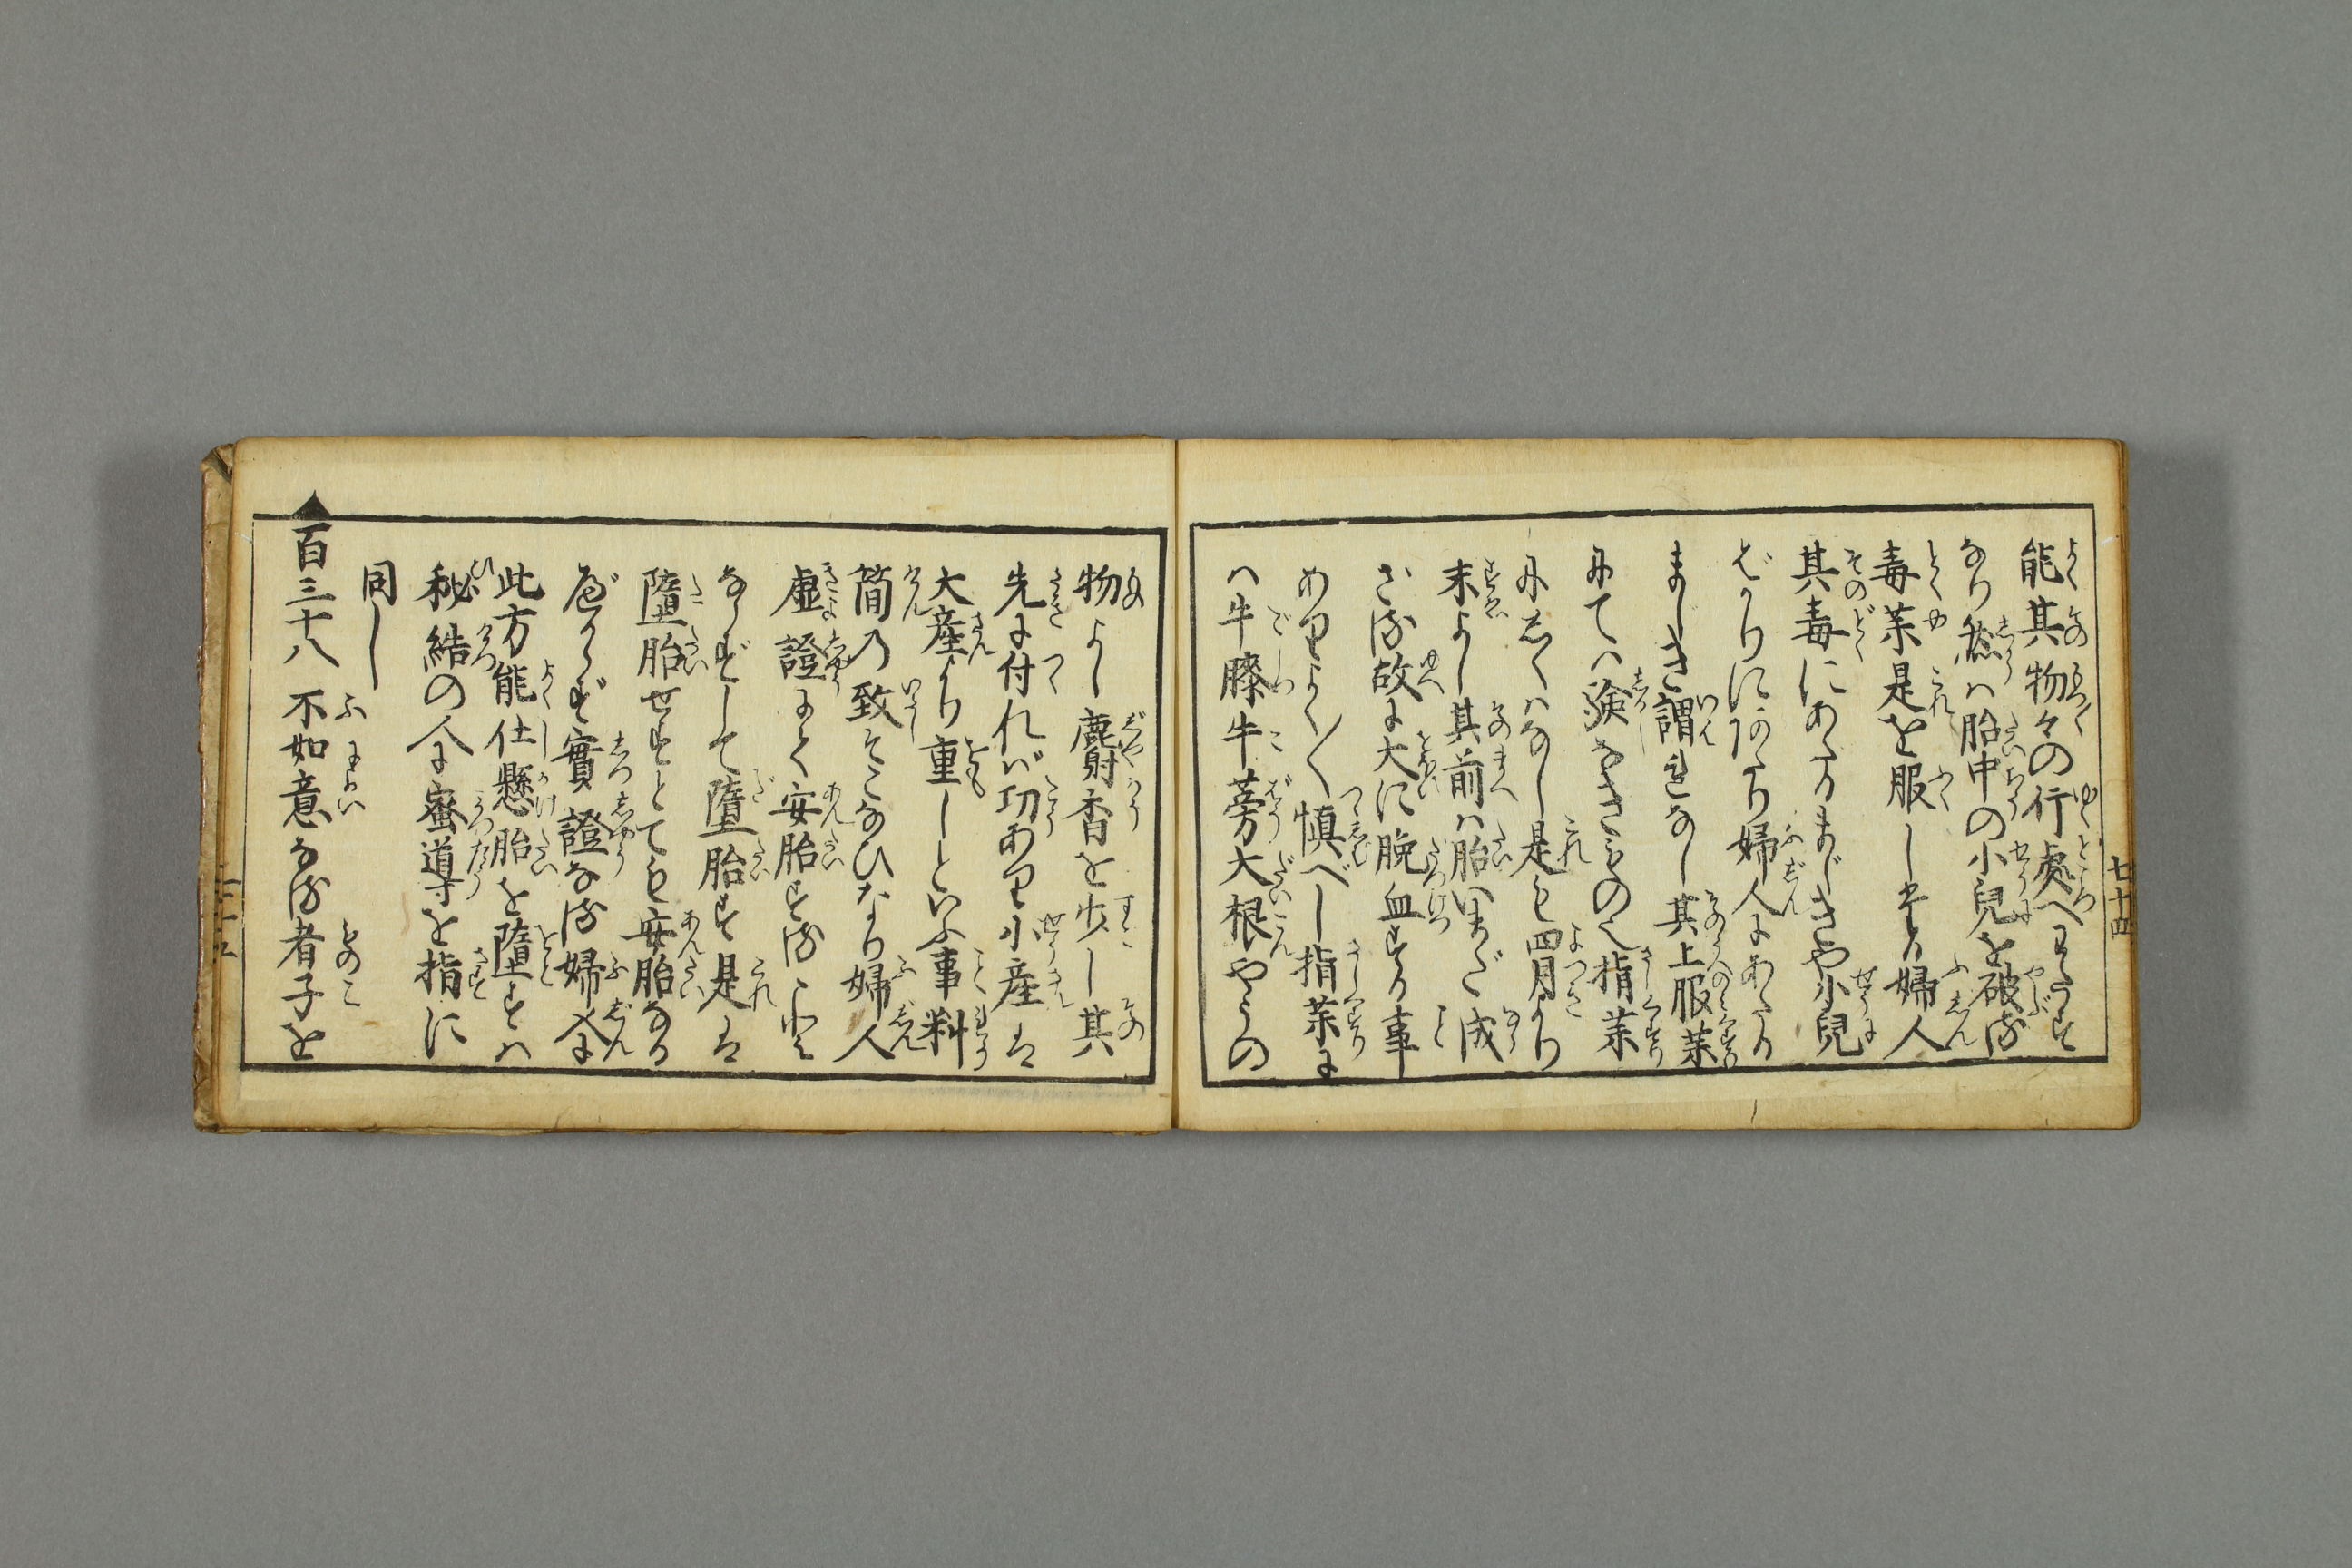 能其物々の行處へわたす
なり然ハ胎中の小兒を破る
毒薬是を服しする婦人
其毒にあたるまじきや小兒
ばかりにあたり婦人にあたる
まじき謂れなし其上服薬
にてハ験なきもの也指薬
にあらくハなし是も四月より
末よし其前ハ胎いまだ成
ざる故に大に脱血する事
ありよく〳〵慎べし指薬に
ハ牛膝牛蒡大根やうの
物よし麝香を少し其
先に付れバ功あり小産は
大産より重しといふ事料
簡の致そこなひなり婦人
虚證にて安胎する
ならずして墮胎す是は
墮胎せずとても安胎なる
べからず實證なる婦人に
此方能仕懸胎を墮すハ
秘結の人に蜜導を指に
同し
▲百三十八 不如意なる者子を
七十四